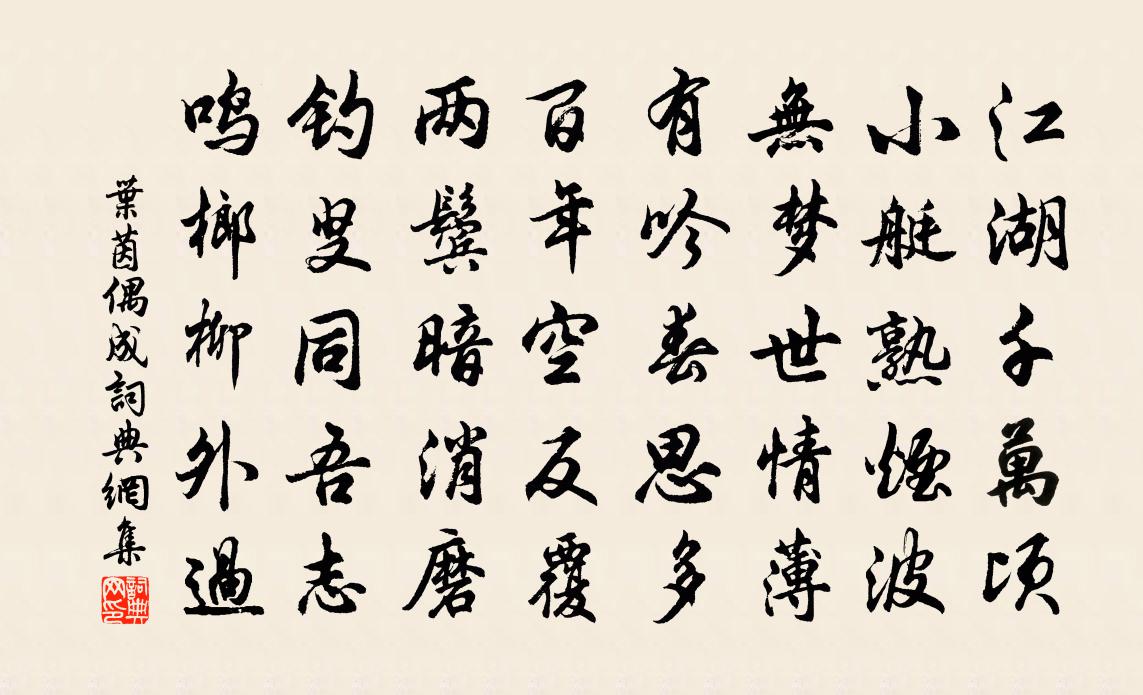 江湖千萬頃
小艇熟煙波
無梦世情薄
有吟春思多
百年空反覆
两鬓暗消磨
钓叟同吾志
鸣榔柳外過
葉茵偶成詞典網集
詞典网印